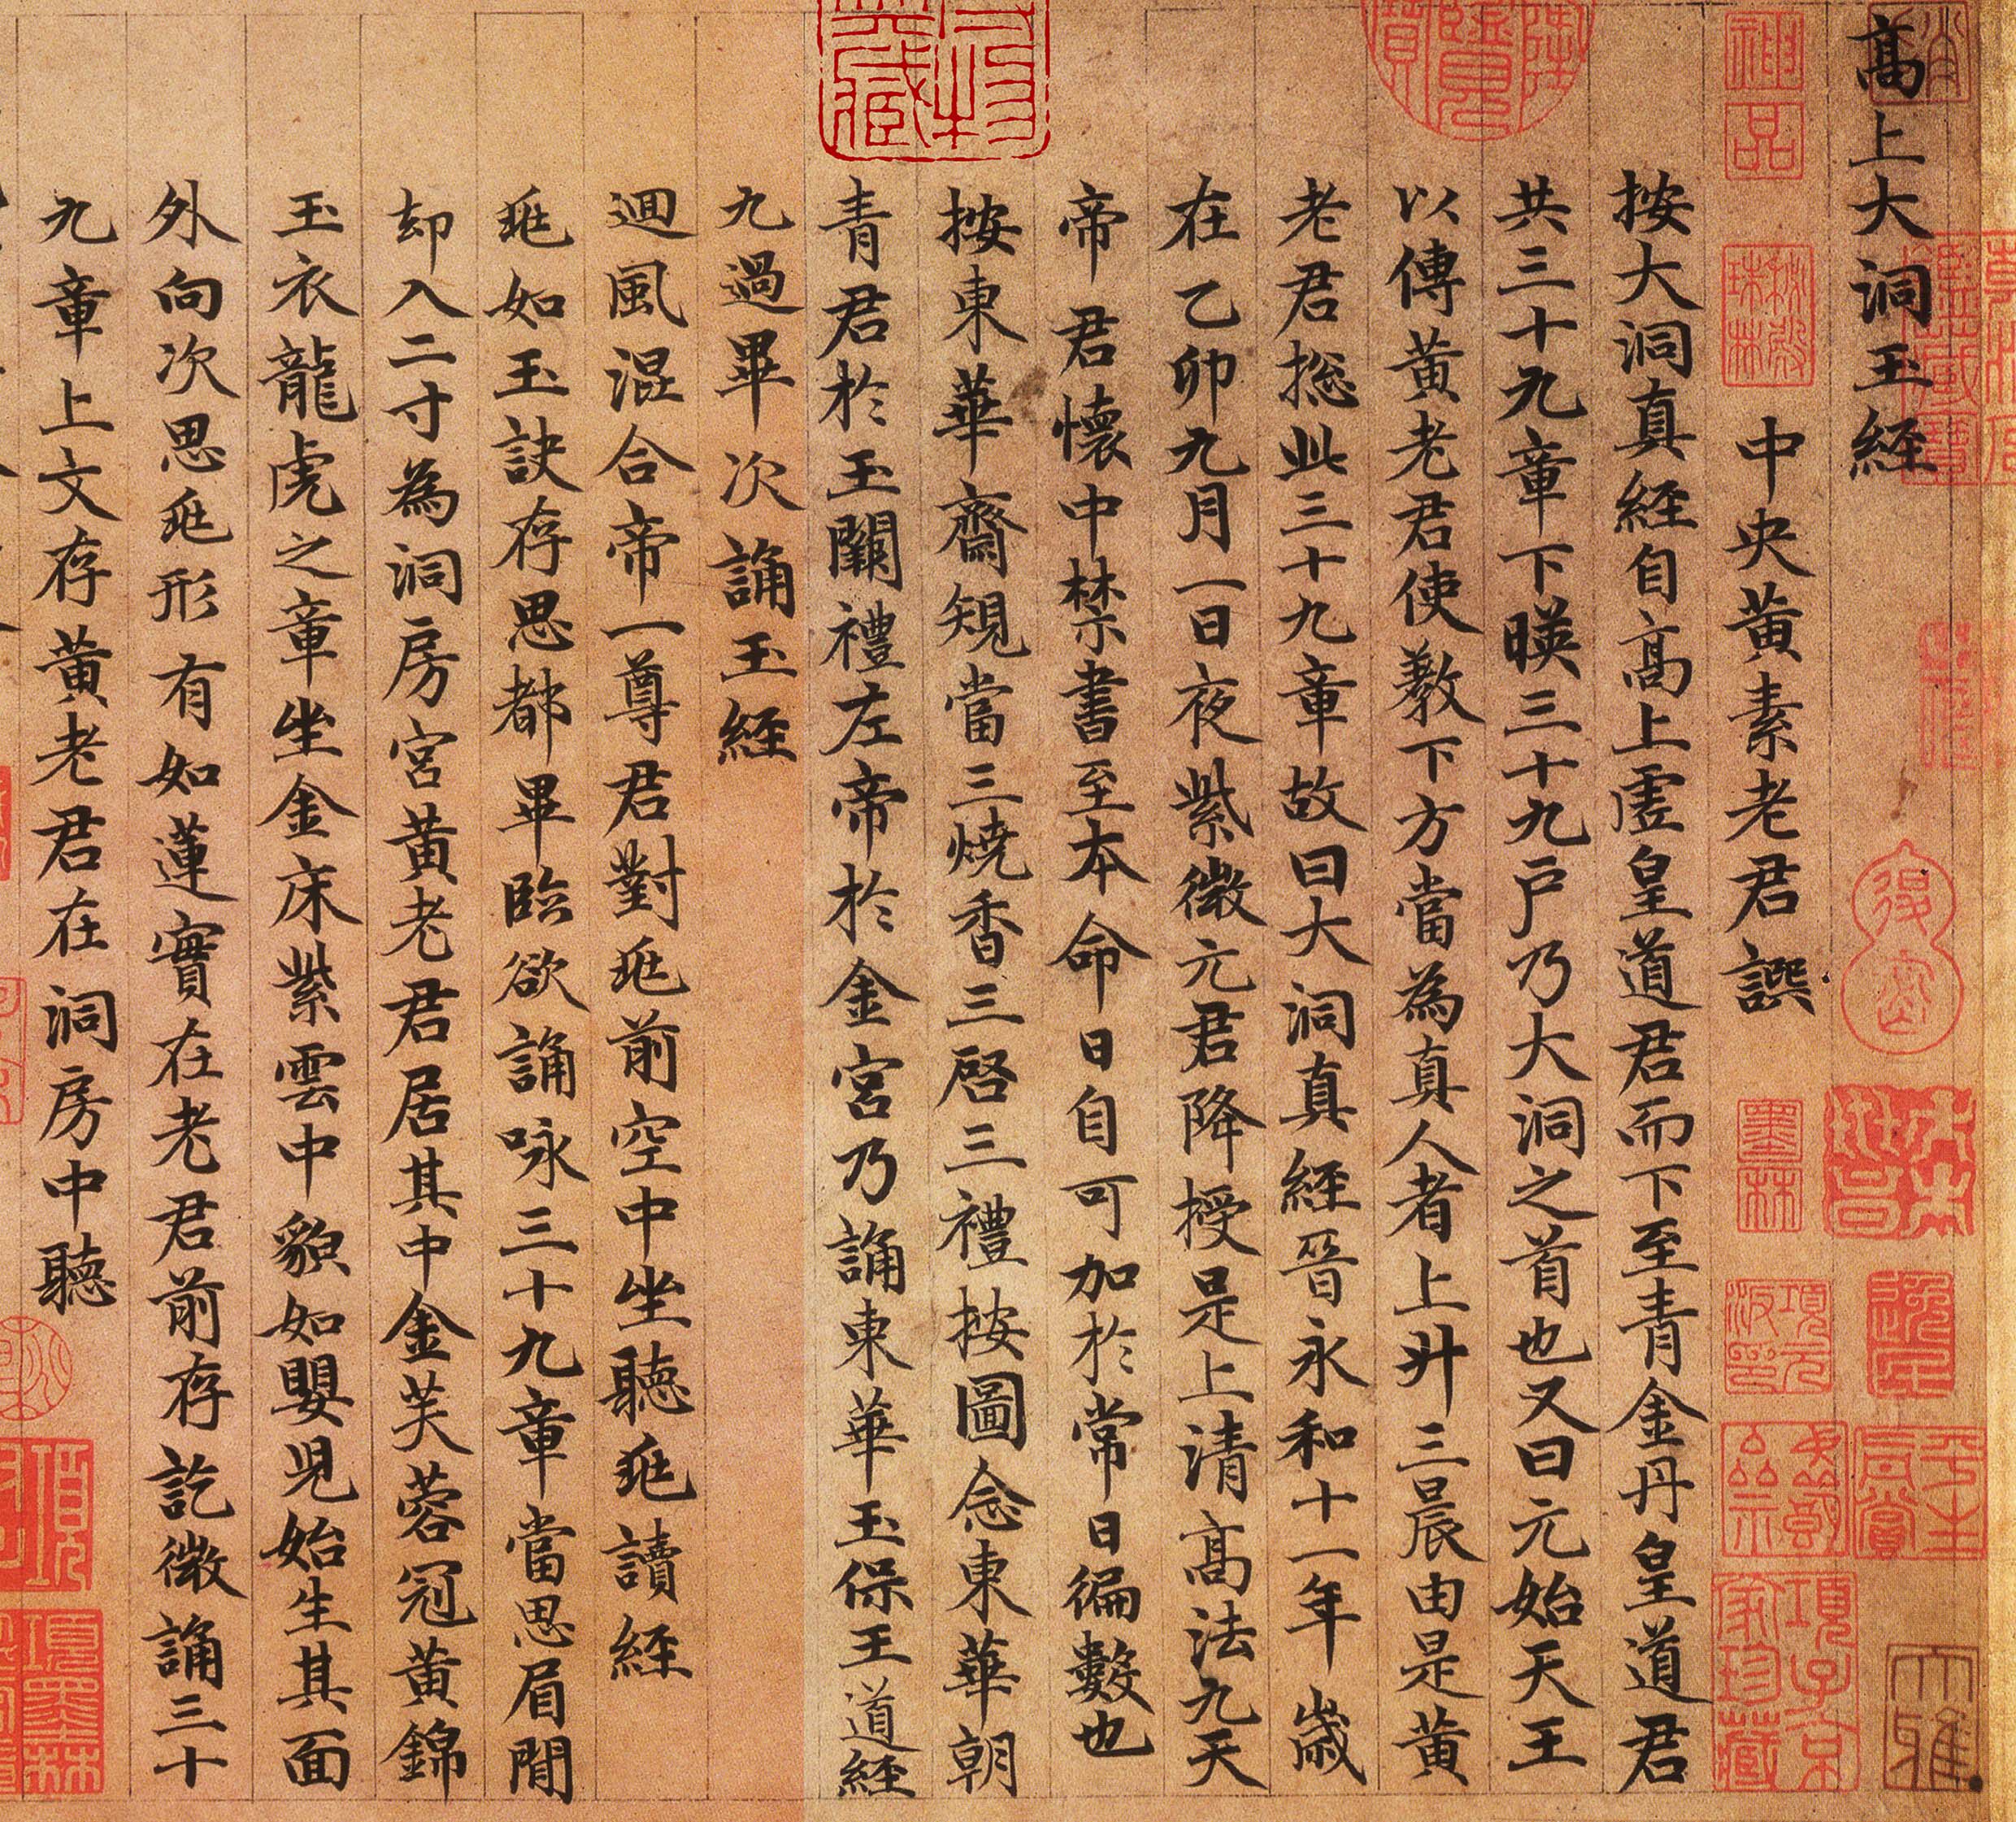 高上大洞玉經
中央黃素老君譔
按大洞真經自高上虛皇道君而下至青金丹皇道君
共三十九章下暎三十九戶乃大洞之首也又曰元始天王
以傳黃老君使教下方當為真人者上升三晨由是黃
老君揔此三十九章故曰大洞真經晉永和十一年歲
在乙卯九月一日夜紫微元君降授是上清高法九天
帝君懷中禁書至本命日自可加於常日徧數也
按東華齋規當三燒香三啓三禮按圖念東華朝
青君於玉闕禮左帝於金宮乃誦東華玉保王道經
九過畢次誦玉經
迴風混合帝一尊君對兆前空中坐聽兆讀經
兆如玉訣存思都畢臨欲誦咏三十九章當思眉間
却入二寸為洞房宮黃老君居其中金芙蓉冠黃錦
玉衣龍虎之章坐金床紫雲中貌如嬰兒始生其面
外向次思兆形有如蓮實在老君前存訖微誦三十
九章上文存黃老君在洞房中聽
神品
項元汴印
項子京家珍藏
墨林
平生真賞
項墨林